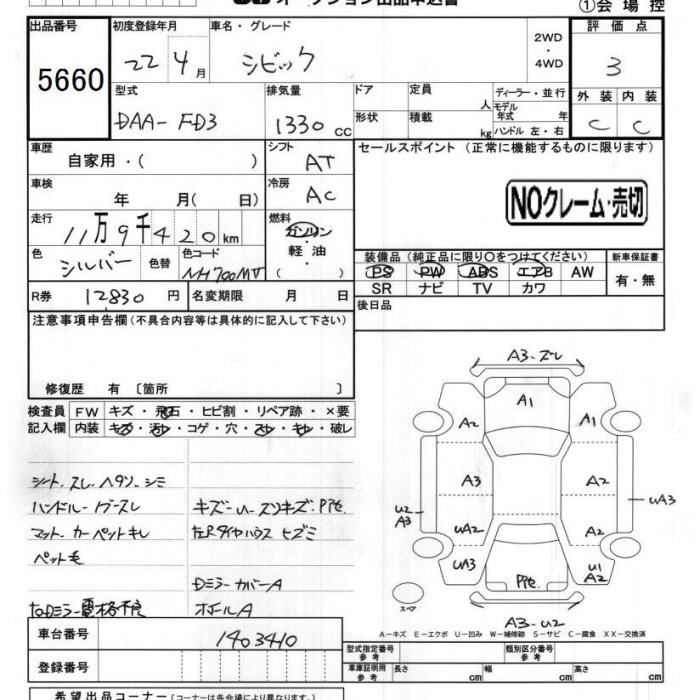 オークション出品申込書
①会場控
出品番号
5660
初度登録年月
22年4月
車名・グレード
シビック
2WD
・
4WD
評価点
3
型式
DAA-FD3
排気量
1330 cc
ドア
形状
定員
人
積載
kg
ディーラー・並行
モデル年式 年
ハンドル 左・右
外装 内装
C C
車歴
自家用・( )
シフト
AT
車検
年 月( 日)
冷房
AC
走行
11万9千420km
燃料
ガソリン
・
軽油
( )
色
シルバー
色替
色コード
NH700MV
R券 12830円
名変期限 月 日
セールスポイント(正常に機能するものに限ります)
NOクレーム・売切
装備品(純正品に限り〇をつけてください)
PS PW ABS エアB AW
SR ナビ TV カワ
新車保証書
有・無
後日品
注意事項申告欄(不具合内容等は具体的に記入して下さい)
修復歴 有 〔箇所 〕
検査員 FW キズ・飛石・ヒビ割・リペア跡・×要
記入欄 内装 キズ・汚レ・コゲ・穴・スレ・キレ・破レ
シート、スレ、ヘタリ、シミ
ハンドルー
マット、カーペットキレ
ペット毛
キズー
Pit.
左Rタイヤハウス ヒズミ
DミラーカバーA
ホイールA
A3-ズレ
A1
A2
A1
A3
A2
U2
A3
UA3
UA2
A2
UA3
U1
A2
Pit.
スペア
A3-U2
A−キズ E−エクボ U−凹み W−補修跡 S−サビ C−腐食 XX−交換済
車台番号 1403410
登録番号
型式指定番号
参考
類別区分番号
参考
車庫証明用
参考
長さ cm
幅 cm
高さ cm
希望出品コーナー(コーナーは各会場により異なります。)